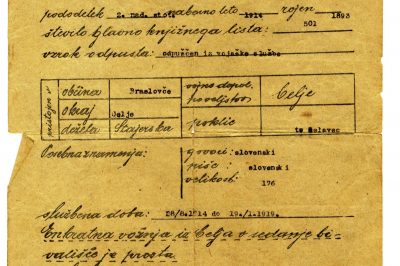 pododdelek 2. nad. stot. naborno leto 1914 rojen 1893
številò glavno knjižnega lista: 501
vzrok odpusta: odpuščen iz vojaške službe
pristojen v
občina Braslovče
okraj Celje
dežela Štajerska
vojno dopol. poveljstvo Celje
poklic delavec
Posebna znamenja:
govori: slovenski
piše: slovenski
velikost: 176
službena doba: 28/8.1914 do 19./1.1919.
Enkratna vožnja iz Celja v sedanje bi-
vališče je prosta.